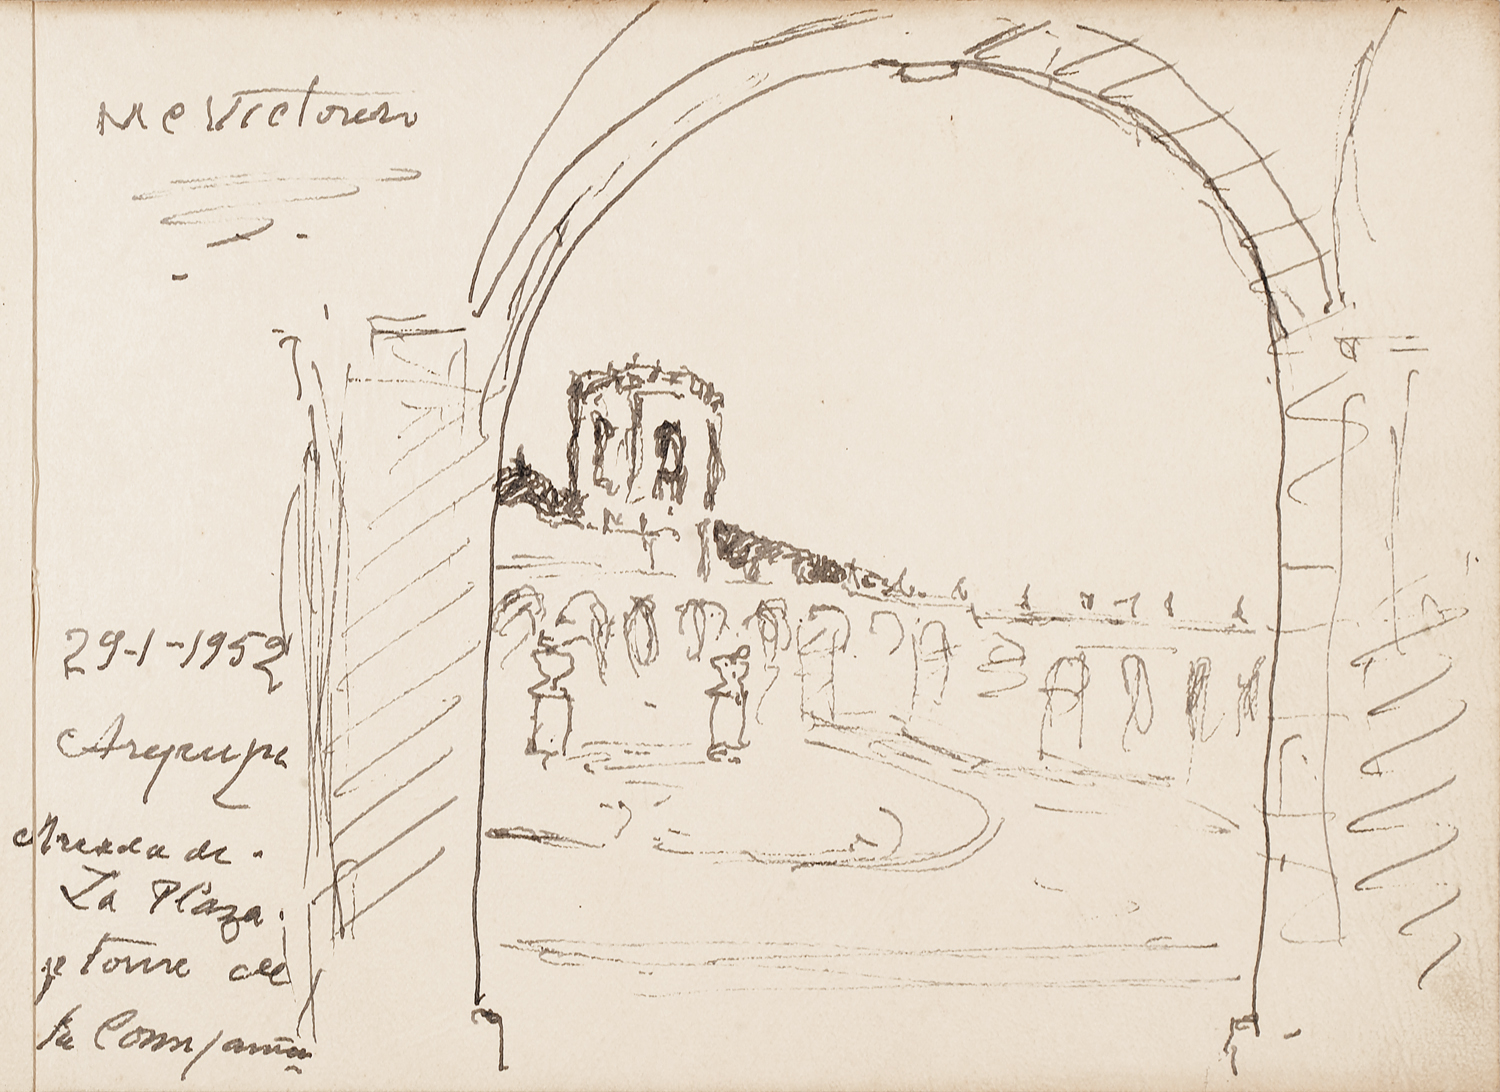 M C Victorero
29-1-1952
Arequipa
Arcada de
La Plaza
y Torre de
la Compañia